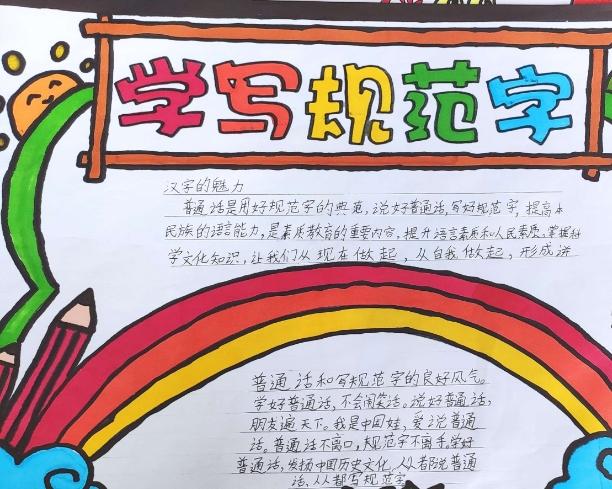 学写规范字
汉字的魅力
普通话是用好规范字的典范,说好普通话,写好规范字,提高本
民族的语言能力,是素质教育的重要内容。提升语言素质和人民素质、掌握科
学文化知识,让我们从现在做起,从自我做起,形成讲
普通话和写规范字的良好风气。
学好普通话,不会闹笑话。说好普通话,
朋友遍天下。我是中国娃,爱说普通
话。普通话不离口,规范字不离手。学好
普通话,发扬中国历史文化。人人都说普通
话、人人都写规范字